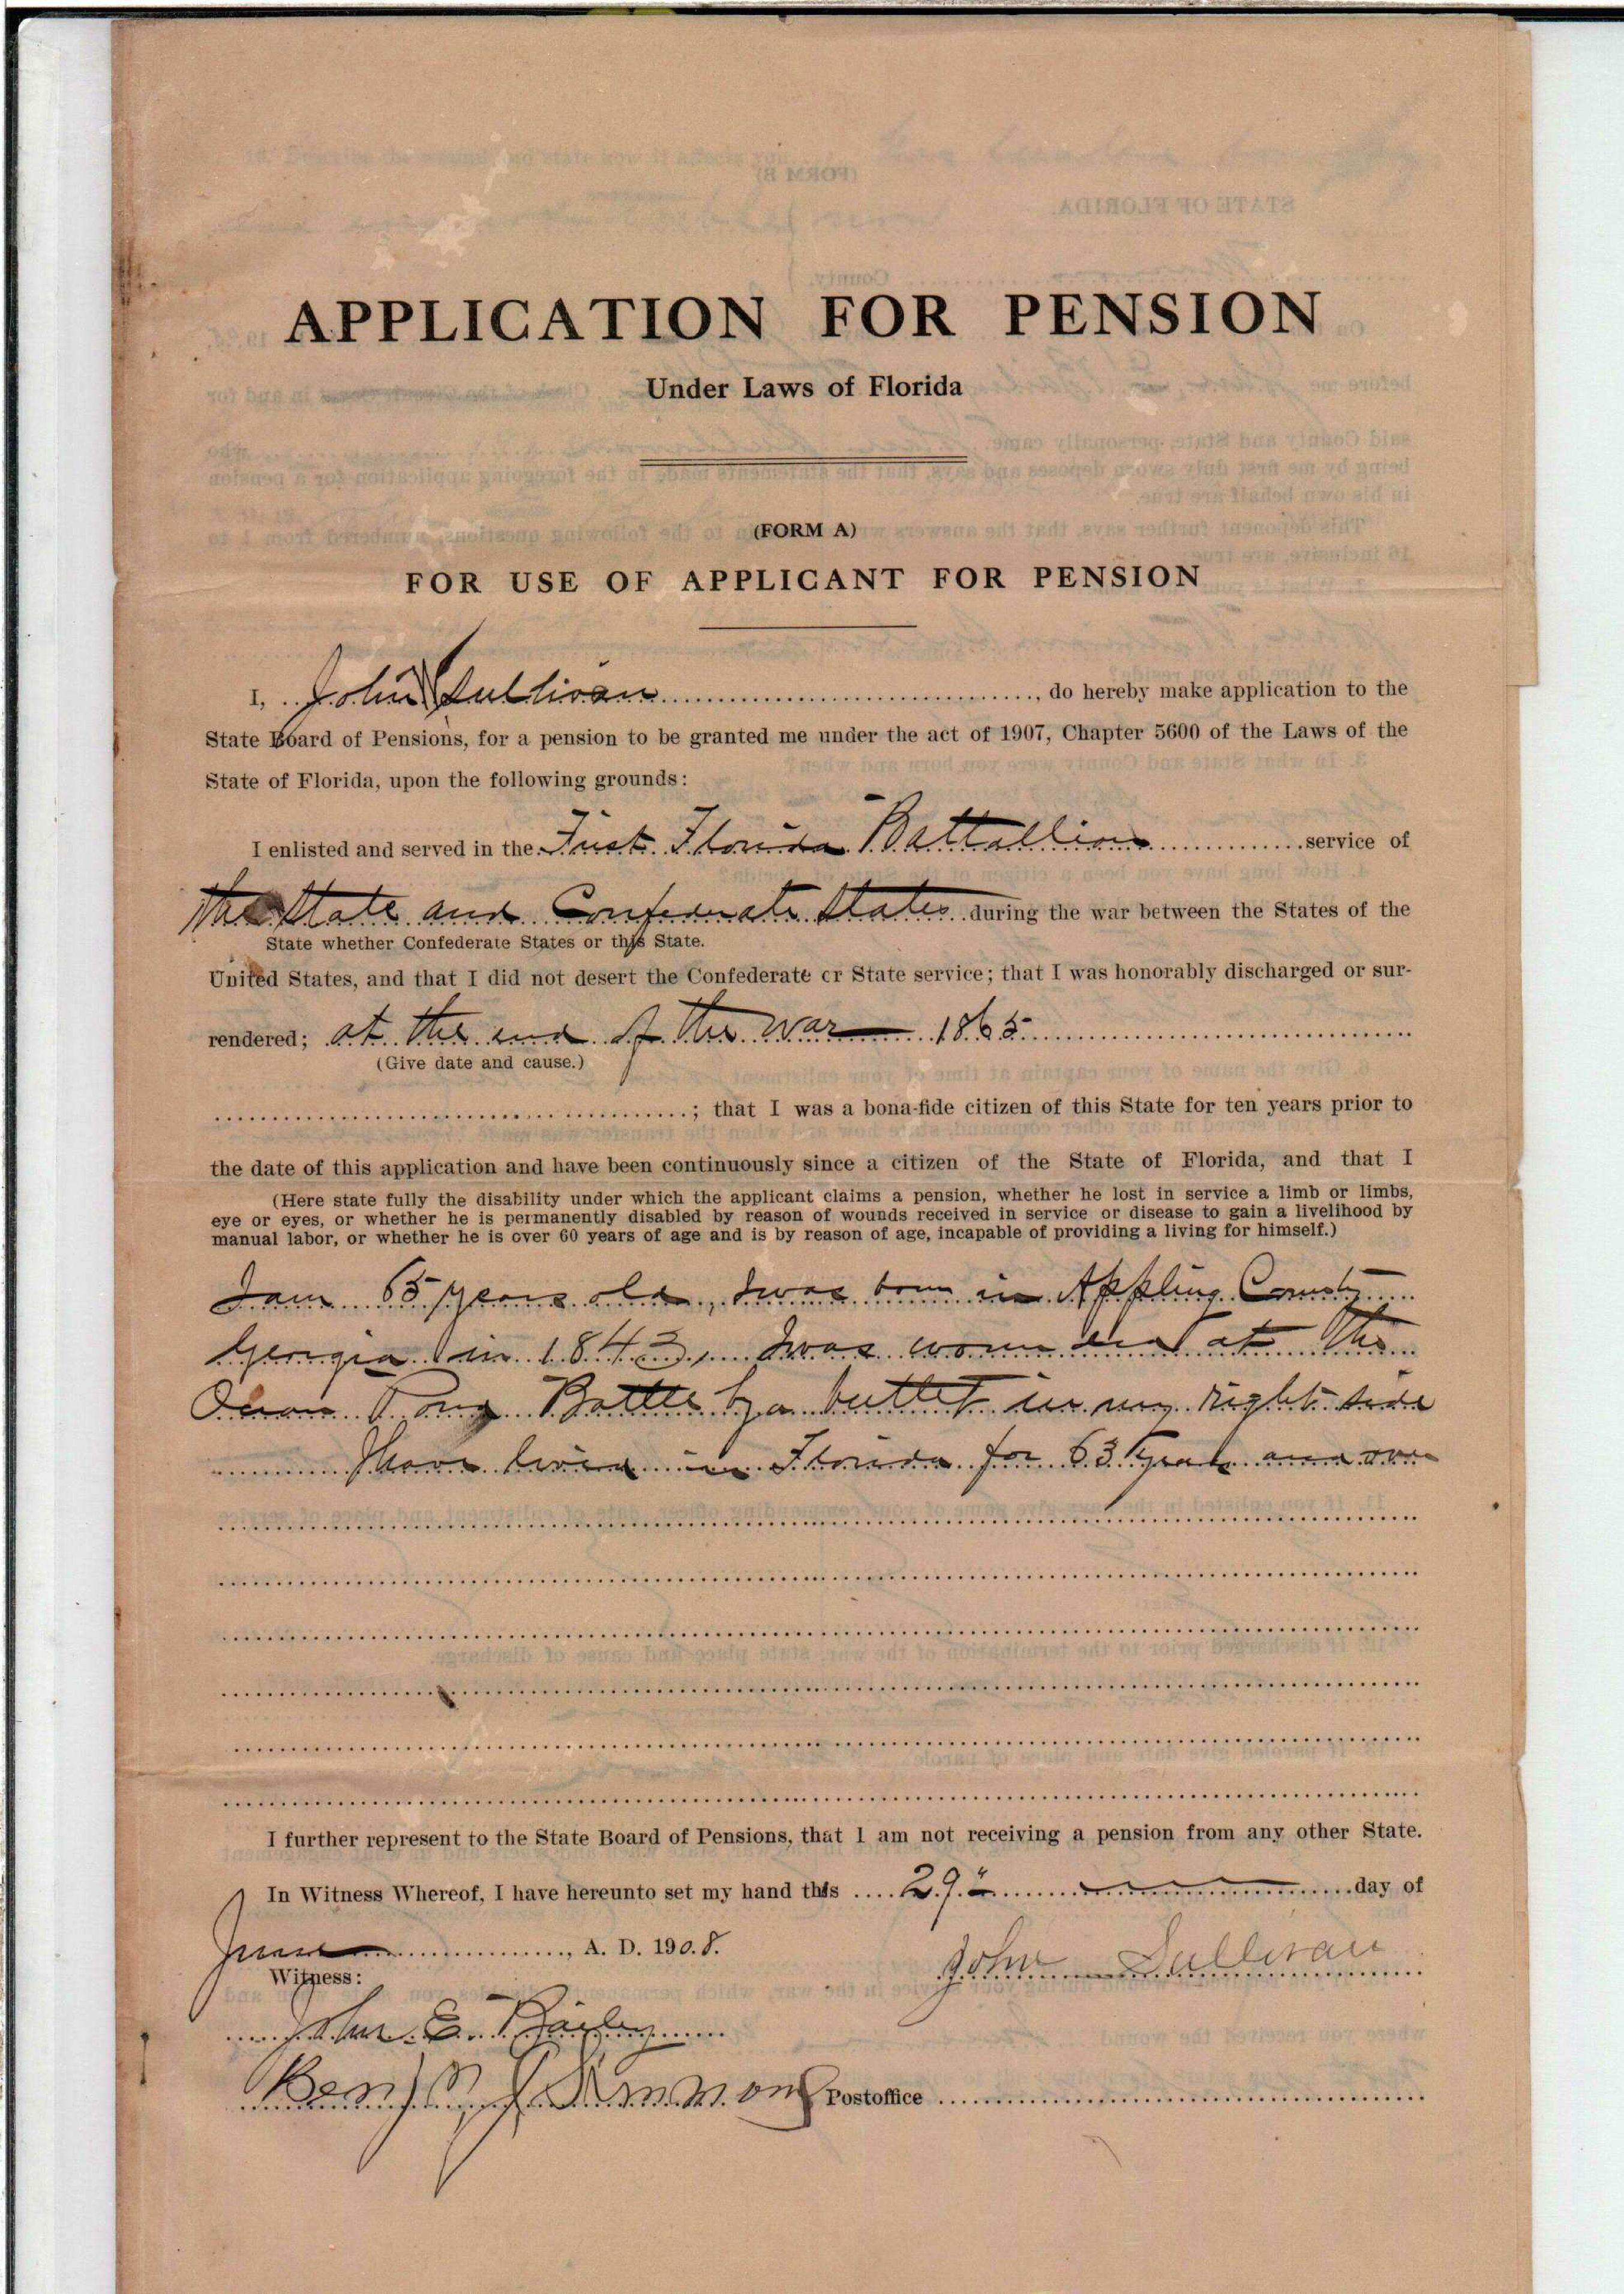 APPLICATION FOR PENSION
Under Laws of Florida
(FORM A)
FOR USE OF APPLICANT FOR PENSION
I, John Sullivan, do hereby make application to the
State Board of Pensions, for a pension to be granted me under the act of 1907, Chapter 5600 of the Laws of the
State of Florida, upon the following grounds:
I enlisted and served in the First Florida Battallion service of
The State and Confederate States during the war between the States of the
State whether Confederate States or this State.
United States, and that I did not desert the Confederate or State service; that I was honorably discharged or sur-
rendered; at the end of the war 1865
(Give date and cause.)
; that I was a bona-fide citizen of this State for ten years prior to
the date of this application and have been continuously since a citizen of the State of Florida, and that I
(Here state fully the disability under which the applicant claims a pension, whether he lost in service a limb or limbs,
eye or eyes, or whether he is permanently disabled by reason of wounds received in service or disease to gain a livelihood by
manual labor, or whether he is over 60 years of age and is by reason of age, incapable of providing a living for himself.)
I am 65 years old, I was born in Appling County
Georgia in 1843, I was wounded at the
Ocean Pond Battle by a bullet in my right side
I have lived in Florida for 63 years and over
I further represent to the State Board of Pensions, that I am not receiving a pension from any other State.
In Witness Whereof, I have hereunto set my hand this 29" day of
June, A. D. 1908.
John Sullivan
Witness:
John E. Bailey
Benj Simmons
Postoffice